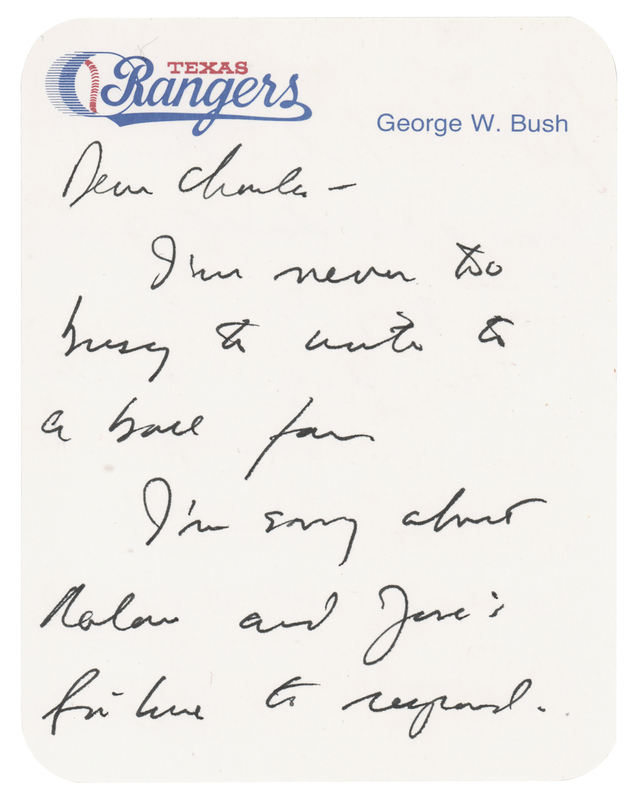 TEXAS
Rangers
George W. Bush
Dear Charles –
I'm never too
busy to write to
a base fan
I'm sorry about
Nolan and Jose's
failure to respond.